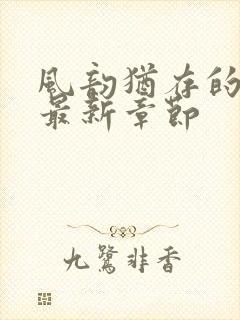 風韵猶存的
最新章節
九鷺非香